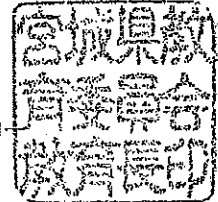 宮城県教
育委員会
教育長印